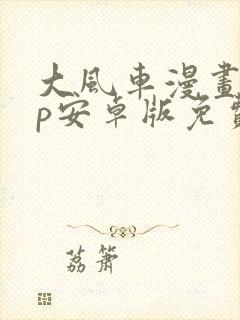 大風車漫畫
p安卓版免費
荔簫